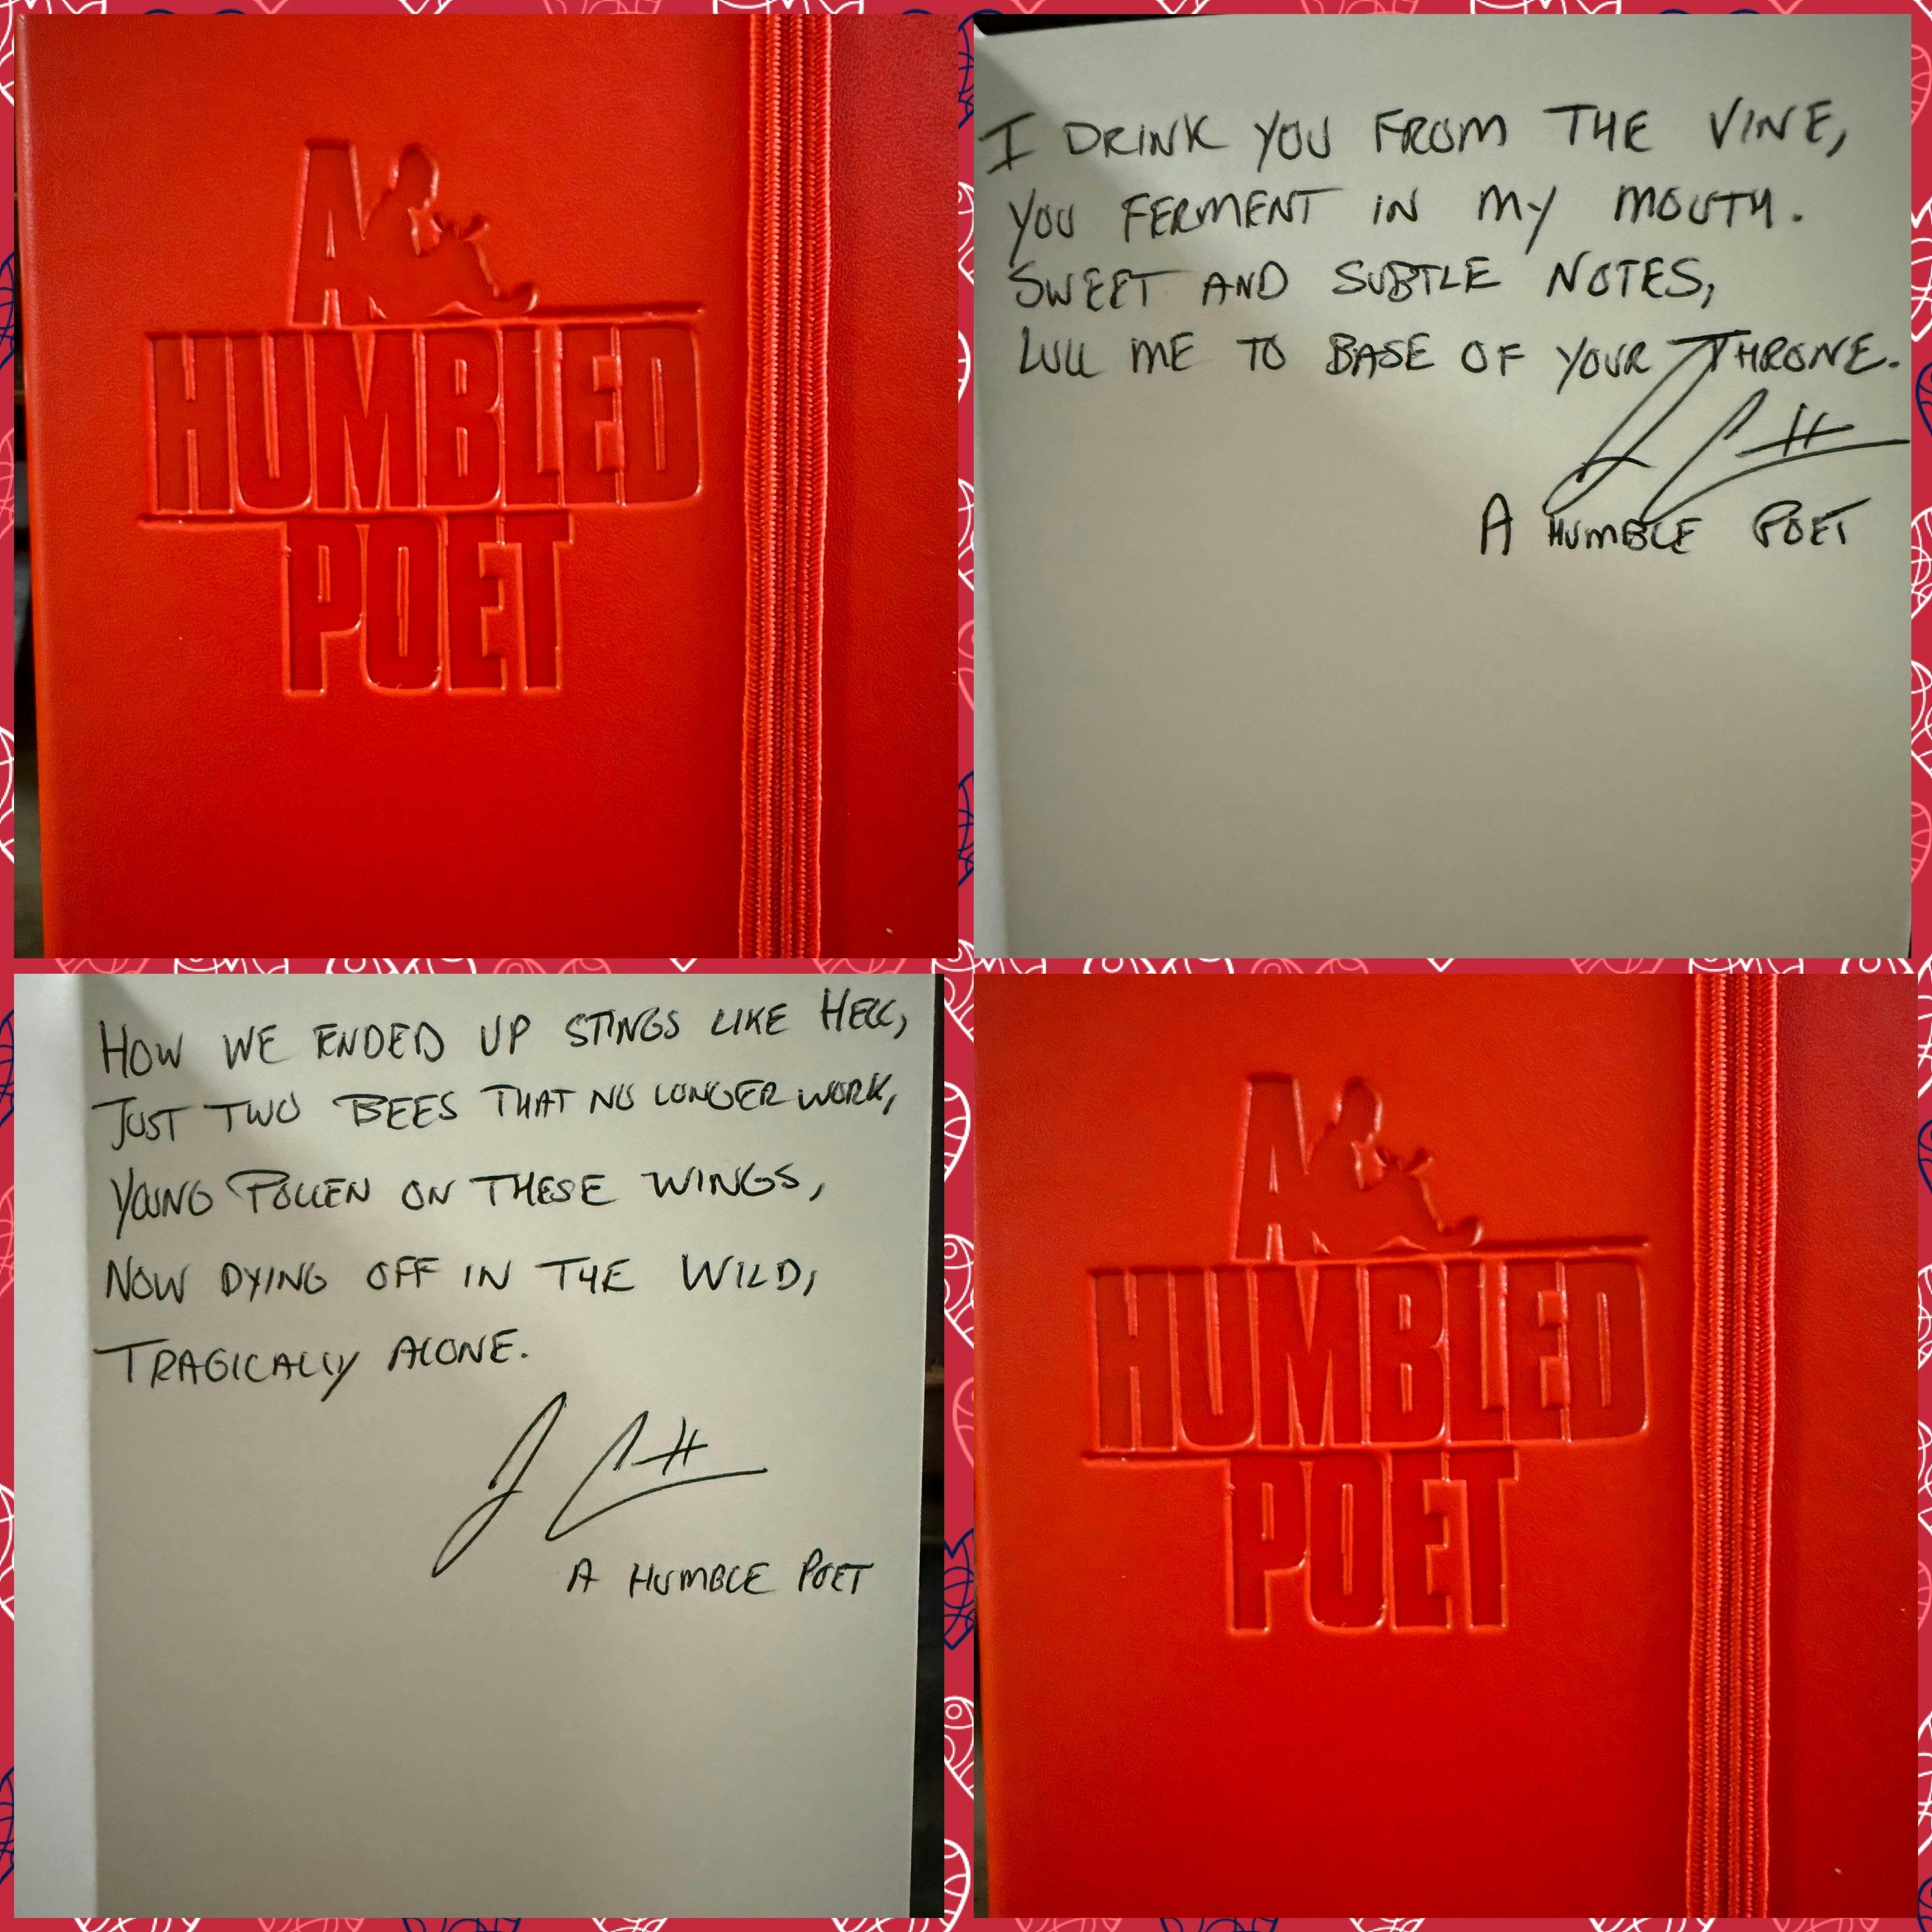 A
HUMBLED
POET
I DRINK YOU FROM THE VINE,
YOU FERMENT IN MY MOUTH.
SWEET AND SUBTLE NOTES,
LULL ME TO BASE OF YOUR THRONE.
A HUMBLE POET
HOW WE ENDED UP STINGS LIKE HELL,
JUST TWO BEES THAT NO LONGER WORK,
YOUNG POLLEN ON THESE WINGS,
NOW DYING OFF IN THE WILD,
TRAGICALLY ALONE.
A HUMBLE POET
A
HUMBLED
POET